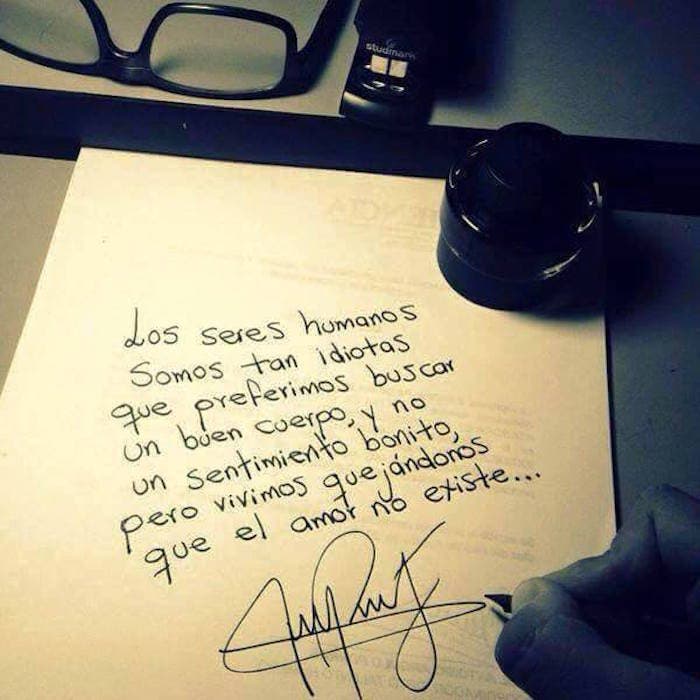 studmark
Los seres humanos
Somos tan idiotas
que preferimos buscar
un buen cuerpo, y no
un sentimiento bonito,
pero vivimos quejándonos
que el amor no existe...